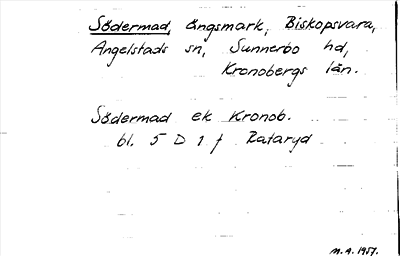 Södermad, ängsmark, Biskopsvara,
Angelstads sn, Sunnerbo hd,
Kronobergs län.
Södermad ek Kronob.
bl. 5 D 1 f Rataryd
M.A. 1957.